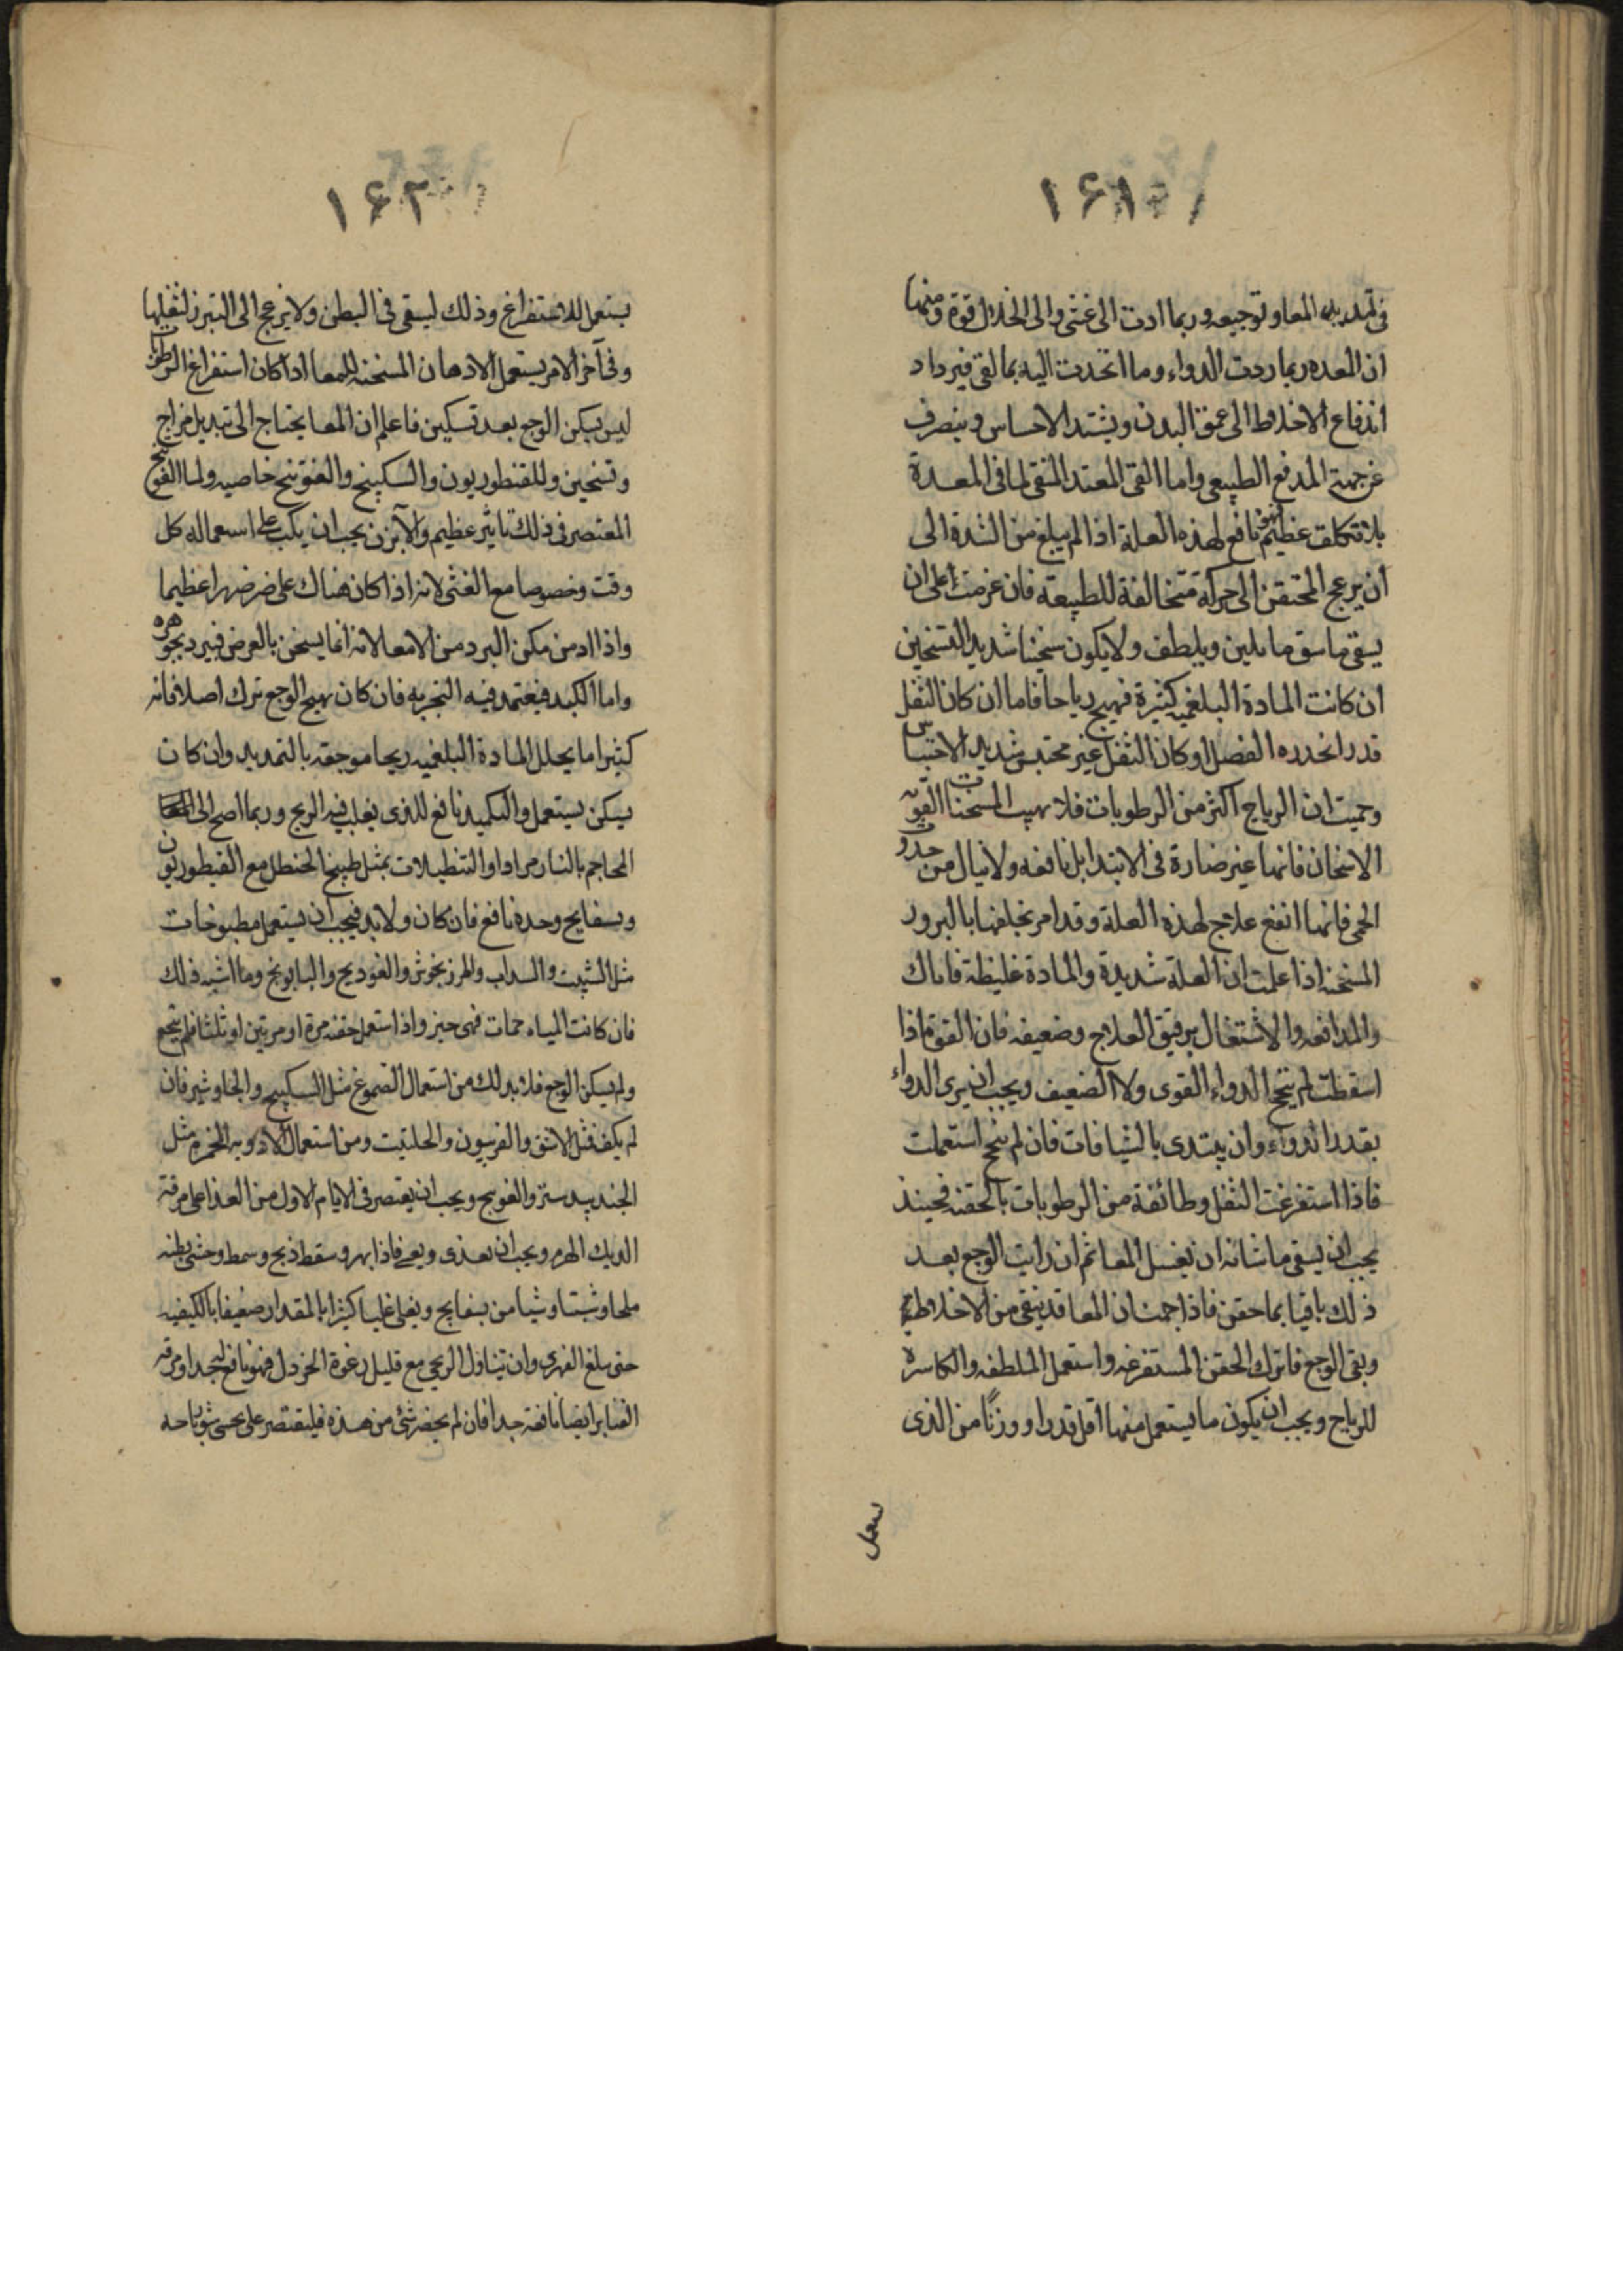 ۱۶۱
فى تمديد المعا وتوجيعه وربما ادت الى غشى والى انحلال قوة ومنها
ان المعده ربما ردت الدواء وما اتحدت اليه بما لقى فيرداد
اندفاع الاخلاط الى عمق البدن ويشتد الاحساس وينصرف
عن جهة المدفع الطبيعى واما القى المعتد المنقى لما فى المعدة
بلا تكلف عظيم فهو نافع لهذه العلة اذا لم يبلغ من الشدة الى
ان يزعج المحتقن الى حركة متخالفة للطبيعة فان عزمت على ان
يسقى ماسق ما يلين ويلطف ولا يكون سخينا شديد التسخين
ان كانت المادة البلغميه كثيرة فهيج رياحا فاما ان كان الثفل
قدر انحدره الفصل او كان الثفل غير محتبس شديد الاحتباس
وحميت ان الرياح اكثر من الرطوبات فلا تهيب المسخنات القويه
الاسخان فانها غير ضارة فى الابتدا بل نافعه ولا تبال من حدو
الحمى فانها انفع علاج لهذه العلة وقد امر بخلفها بالبرور
المسخنه اذا علمت ان العلة شديدة والمادة غليظة فاياك
والمدافعه والاشتغال برقيق العلاج وضعيفه فان القوة اذا
اسقطت لم ينجح الدواء القوى ولا الضعيف ويجب ان يرى الدواء
بقدر الدواء وان يبتدى بالشيافات فان لم ينجح استعملت
فاذا استفرغت الثفل وطائفة من الرطوبات بالحقنه فحينذ
يجب ان يسقى ما شانه ان يغسل المعا ثم ان رايت الوجع بعد
ذلك باقيا بما حقن فاذا حمت ان المعا قد ينقى من الاخلاط
وبقى الوجع فاترك الحقن المستفرغه واستعمل الملطفه والكاسره
للرياح ويجب ان يكون ما يستعمل منها اقل قدرا ووزنًا من الذى
يستعمل
۱۶۲
يستعمل للاستفراغ وذلك ليبقى فى البطن ولا يزعج الى التبرز لثقلها
وفى آخر الامر يستعمل الادهان المسخنه للمعا اذا كان استفراغ الرطوبات
ليس يسكن الوجع بعد تسكين فاعلم ان المعا يحتاج الى تبديل مزاج
وتسخين وللقنطوريون والسكبينج والفتوتنج خاصيه ولما الفوتنج
المعتصر فى ذلك تاثير عظيم والآبزن يجب ان يكب على استعماله كل
وقت وخصوصا مع الغثى لانه اذا كان هناك على ضر ضررا عظيما
واذا ادمن مكن البرد من الامعا لانه انما يسخن بالعرض فيبرد بجوهره
واما الكبد فيعتمد فيه التجربه فان كان يهيج الوجع ترك اصلا فانه
كثيرا ما يحلل المادة البلغميه ريحا موجعه بالتمديد وان كان
يسكن يستعمل والتكميد نافع للذى يغلب فيه الريح وربما اصح الى
المحاجم بالنار مرارا والتنطيلات بمثل طبيخ الحنظل مع القيطوريون
وبسفايج وحده نافع فان كان ولا بد فيجب ان يستعمل مطبوخات
مثل الشبيت والسداب والمرزنجوش والفوديج والبابونج وما اشبه ذلك
فان كانت المياه حمات فهى خير واذا استعمل حقنه مرة او مرتين او ثلثا فلم ينجع
ولم يسكن الوجع فلا بد لك من استعمال الصموغ مثل السكبينج والجاوشير فان
لم يكف فمثل الاشق والفربيون والحلتيت ومن استعمال الادويه المخدرة مثل
الجندبيدستر والفوبيج ويجب ان يقتصر فى الايام الاول من الغذا على مرقة
الديك الهرم ويجب ان يعدى ويعى فاذا بهر وسقط ذبح وسمط وحشى بطنه
ملحا وشبتا وشيا من بسفايج ويغلى غليا كثيرا بالمقدار ضعيفا بالكيفيه
حتى يبلغ الفهرى وان تناول الريحى مع قليل رغوة الخردل فهو نافع له جدا ومرقه
القنابر ايضا نافعة جدا فان لم يحضر شئ من هذه فليقتصر على تحسى شوبباحه